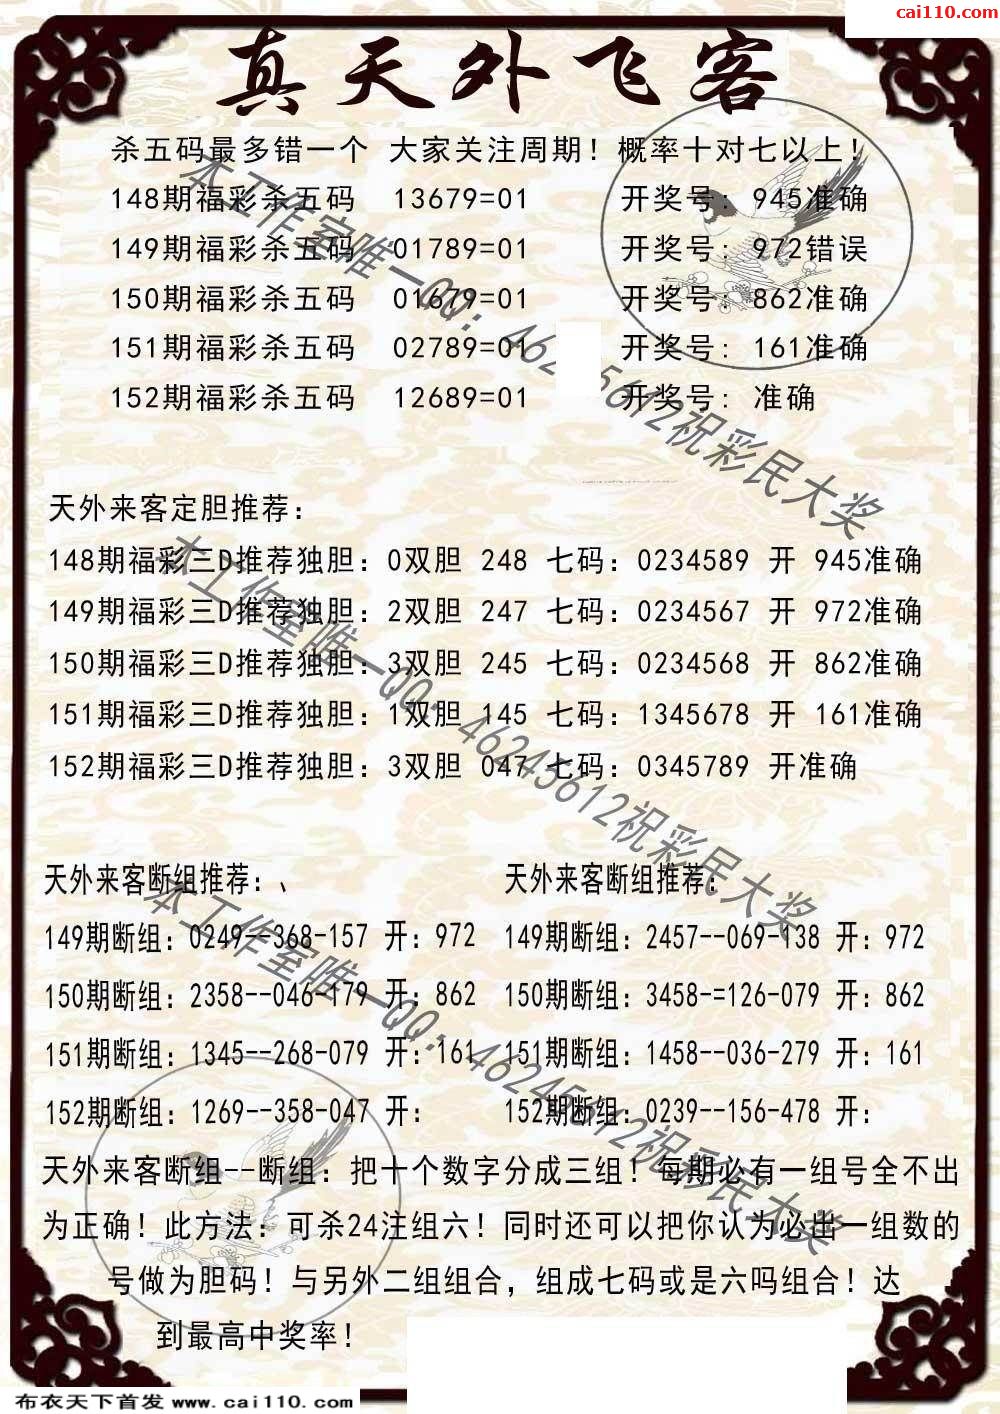 cai110.com
真天外飞客
杀五码最多错一个 大家关注周期！概率十对七以上！
148期福彩杀五码 13679=01 开奖号: 945准确
149期福彩杀五码 01789=01 开奖号: 972错误
150期福彩杀五码 01679=01 开奖号: 862准确
151期福彩杀五码 02789=01 开奖号: 161准确
152期福彩杀五码 12689=01 开奖号: 准确
天外来客定胆推荐:
148期福彩三D推荐独胆: 0双胆 248 七码: 0234589 开 945准确
149期福彩三D推荐独胆: 2双胆 247 七码: 0234567 开 972准确
150期福彩三D推荐独胆: 3双胆 245 七码: 0234568 开 862准确
151期福彩三D推荐独胆: 1双胆 145 七码: 1345678 开 161准确
152期福彩三D推荐独胆: 3双胆 047 七码: 0345789 开准确
天外来客断组推荐:、
149期断组: 0249--368-157 开: 972
150期断组: 2358--046-179 开: 862
151期断组: 1345--268-079 开: 161
152期断组: 1269--358-047 开:
天外来客断组推荐:
149期断组: 2457--069-138 开: 972
150期断组: 3458-=126-079 开: 862
151期断组: 1458--036-279 开: 161
152期断组: 0239--156-478 开:
天外来客断组--断组: 把十个数字分成三组！每期必有一组号全不出
为正确！此方法: 可杀24注组六！同时还可以把你认为必出一组数的
号做为胆码！与另外二组组合，组成七码或是六吗组合！达
到最高中奖率！
本工作室唯一QQ: 46245612祝彩民大奖
本工作室唯一QQ: 46245612祝彩民大奖
本工作室唯一QQ: 46245612祝彩民大奖
布衣天下首发 www.cai110.com